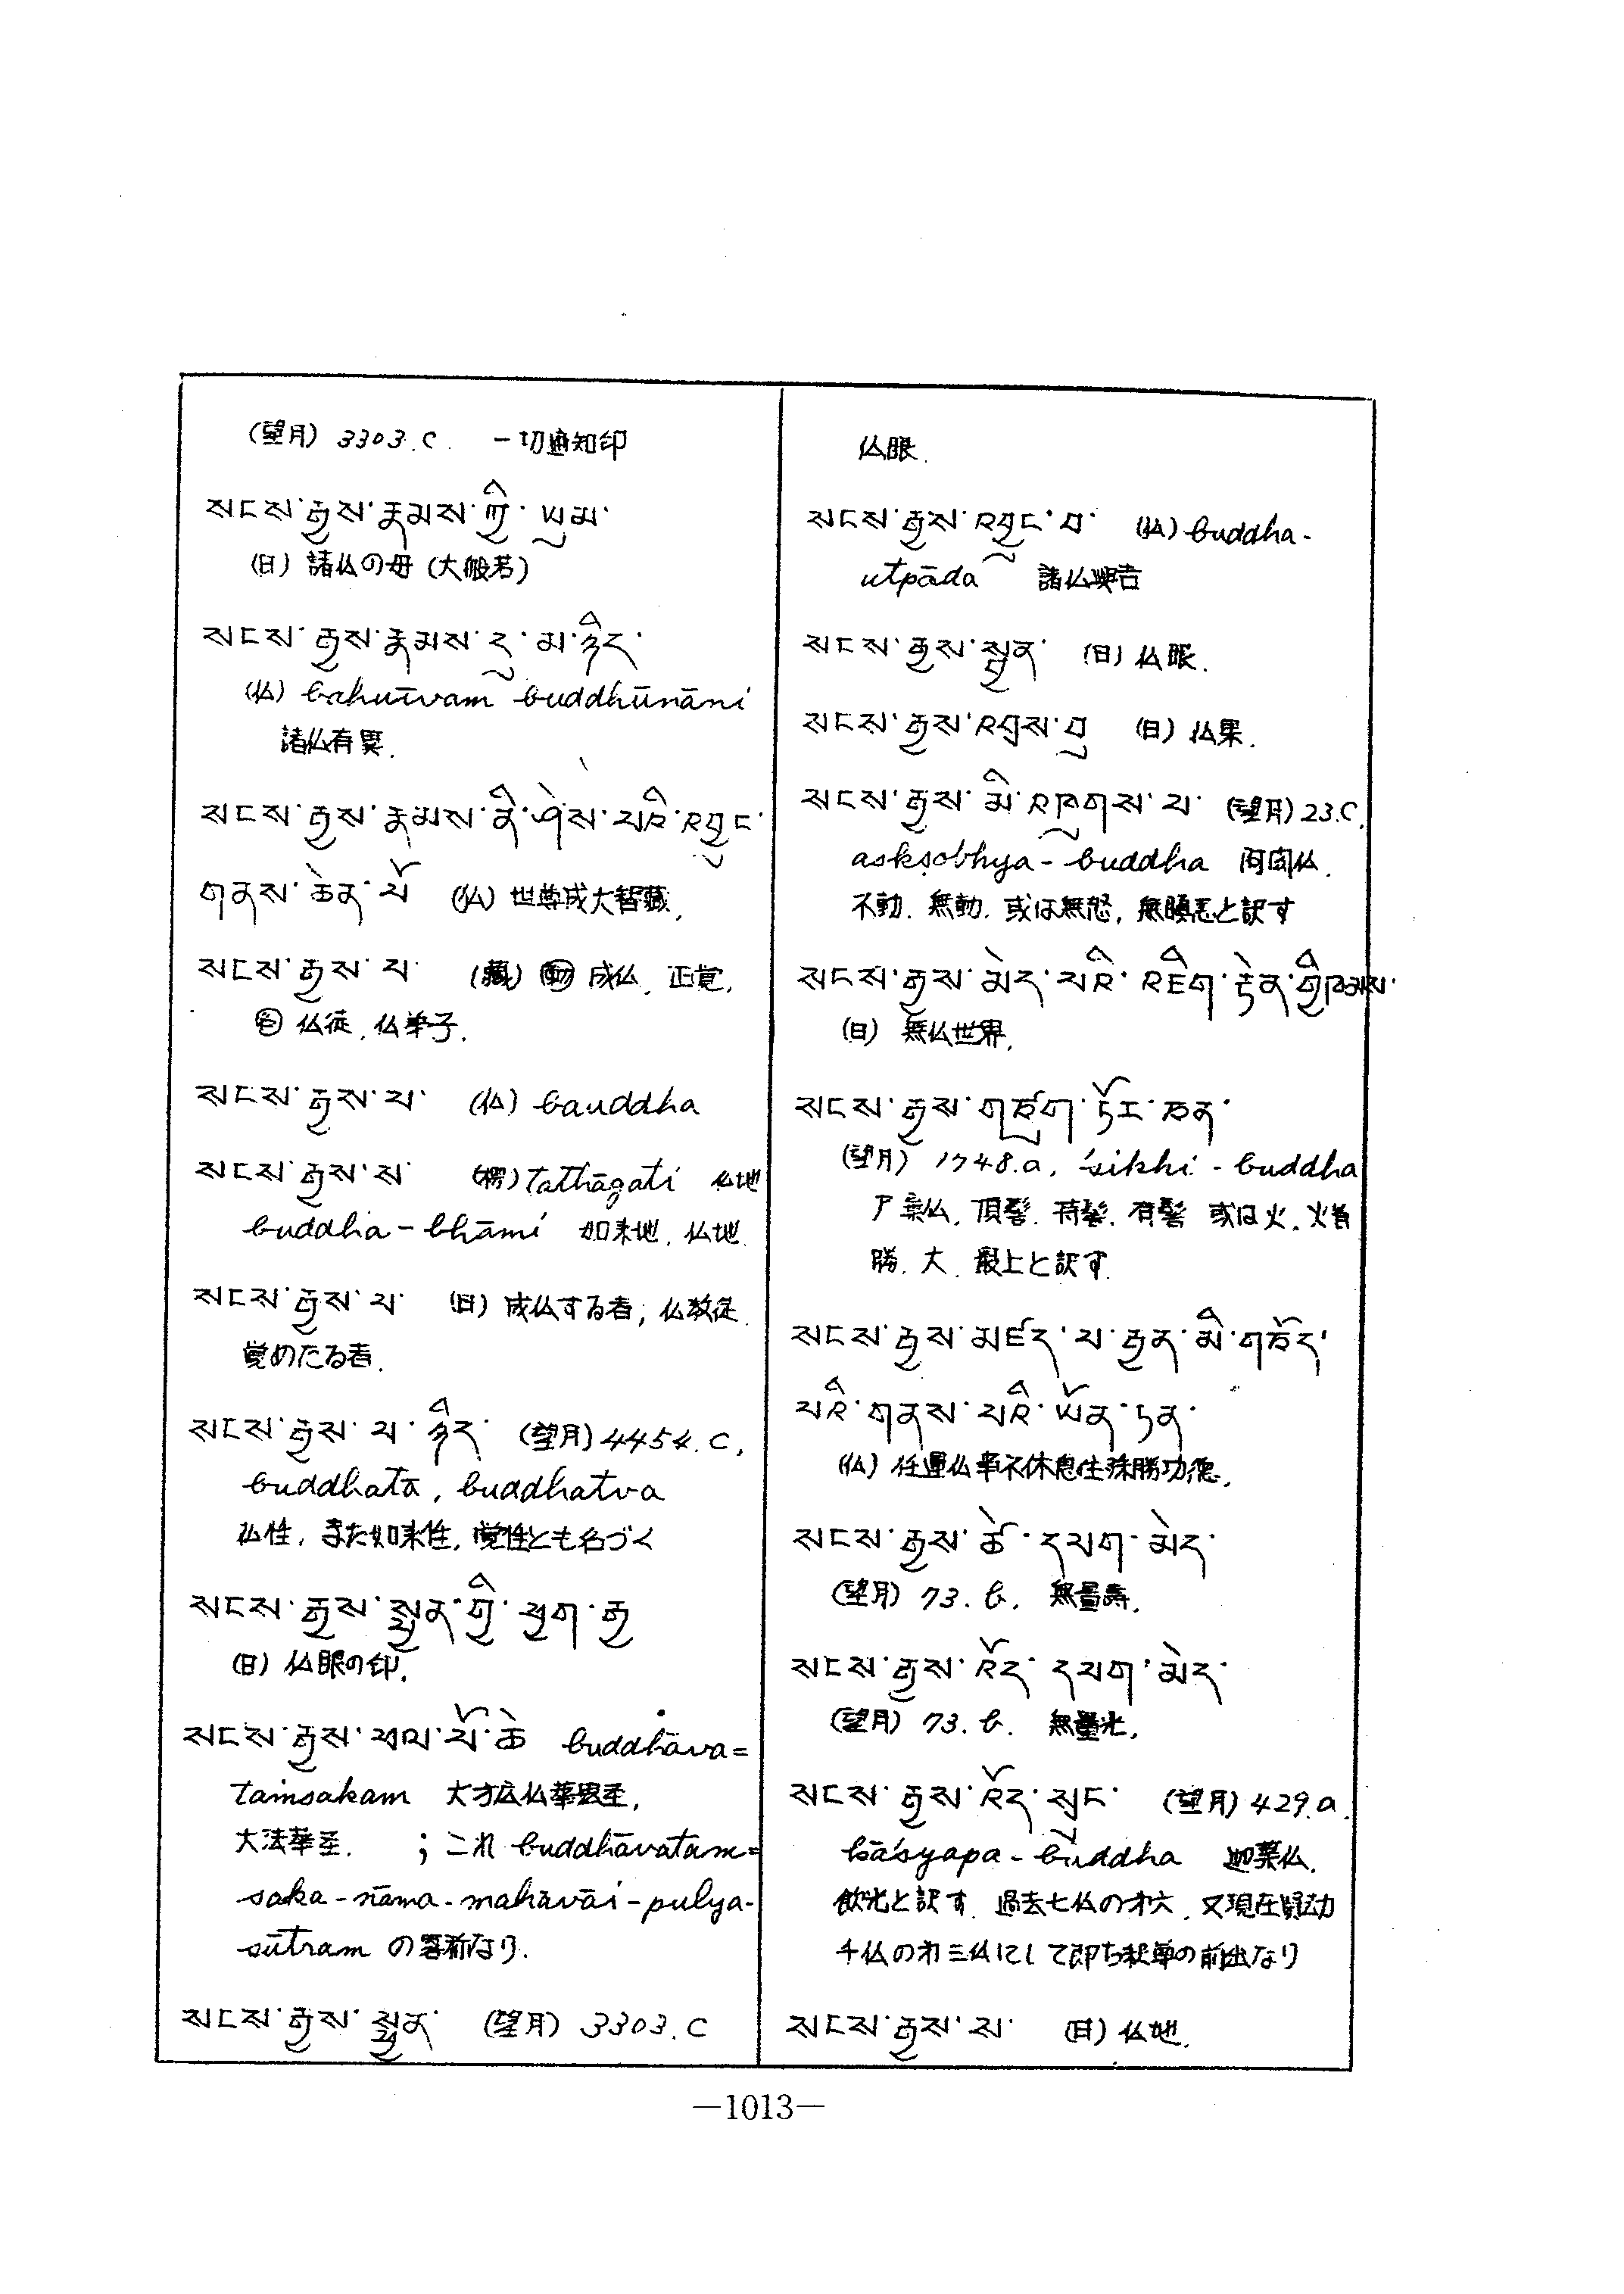 (望月) 3303.C. 一切遍知印
སངས་རྒྱས་རྣམས་ཀྱི་ཡུམ་
(日) 諸仏の母 (大般若)
སངས་རྒྱས་རྣམས་དུ་མ་ཉིད་
(仏) bahutvam buddhūnāni
諸仏有異.
སངས་རྒྱས་རྣམས་ནི་ཤེས་པའི་འབྱུང་
གནས་ཆེན་པོ (仏) 世尊成大智蔵,
སངས་རྒྱས་པ་ (蔵) 動 成仏, 正覚,
名 仏徒, 仏弟子.
སངས་རྒྱས་པ་ (仏) bauddha
སངས་རྒྱས་ས་ (楞) Tathāgati 仏地
buddha-bhāmi 如来地, 仏地.
སངས་རྒྱས་པ་ (日) 成仏する者; 仏教徒.
覚めたる者.
སངས་རྒྱས་པ་ཉིད་ (望月) 4454.C,
buddhatā, buddhatva
仏性, また如来性, 覚性とも名づく
སངས་རྒྱས་སྤྱན་གྱི་ཕྱག་རྒྱ
(日) 仏眼の印.
སངས་རྒྱས་ཕལ་པོ་ཆེ buddhāva=
taṁsakam 大方広仏華厳至,
大法華至. ; これ buddhāvatam=
saka-nāma-mahāvāi-pulya-
sūtram の畧称なり.
སངས་རྒྱས་སྤྱན་ (望月) 3303.C
仏眼.
སངས་རྒྱས་འབྱུང་བ་ (仏) buddha-
utpāda 諸仏興
སངས་རྒྱས་སྤྱན་ (日) 仏眼.
སངས་རྒྱས་འབྲས་བུ (日) 仏果.
སངས་རྒྱས་མི་འཁྲུགས་པ་ (望月) 23.C.
askṣobhya-buddha 阿閦仏.
不動. 無動. 或は無怒, 無瞋恚と訳す
སངས་རྒྱས་མེད་པའི་འཇིག་རྟེན་གྱི་ཁམས་
(日) 無仏世界.
སངས་རྒྱས་གཙུག་ཏོར་ཅན་
(望月) 1748.a, śikhi-buddha
尸棄仏, 頂髻. 持髻. 有髻 或は火. 火首
勝. 大. 最上と訳す.
སངས་རྒྱས་མཛད་པ་རྒྱུན་མི་གཅོད་
པའི་གནས་པའི་ཡོན་ཏན་
(仏) 任運仏事不休息住殊勝功徳.
སངས་རྒྱས་ཚེ་དཔག་མེད་
(望月) 73.b. 無量寿.
སངས་རྒྱས་འོད་དཔག་མེད་
(望月) 73.b. 無量光.
སངས་རྒྱས་འོད་སྲུང་ (望月) 429.a.
kāśyapa-buddha 迦葉仏.
飲光と訳す. 過去七仏の才六, 又現在賢劫
千仏の才三仏にして即ち釈尊の前出なり
སངས་རྒྱས་ས་ (日) 仏地.
—1013—